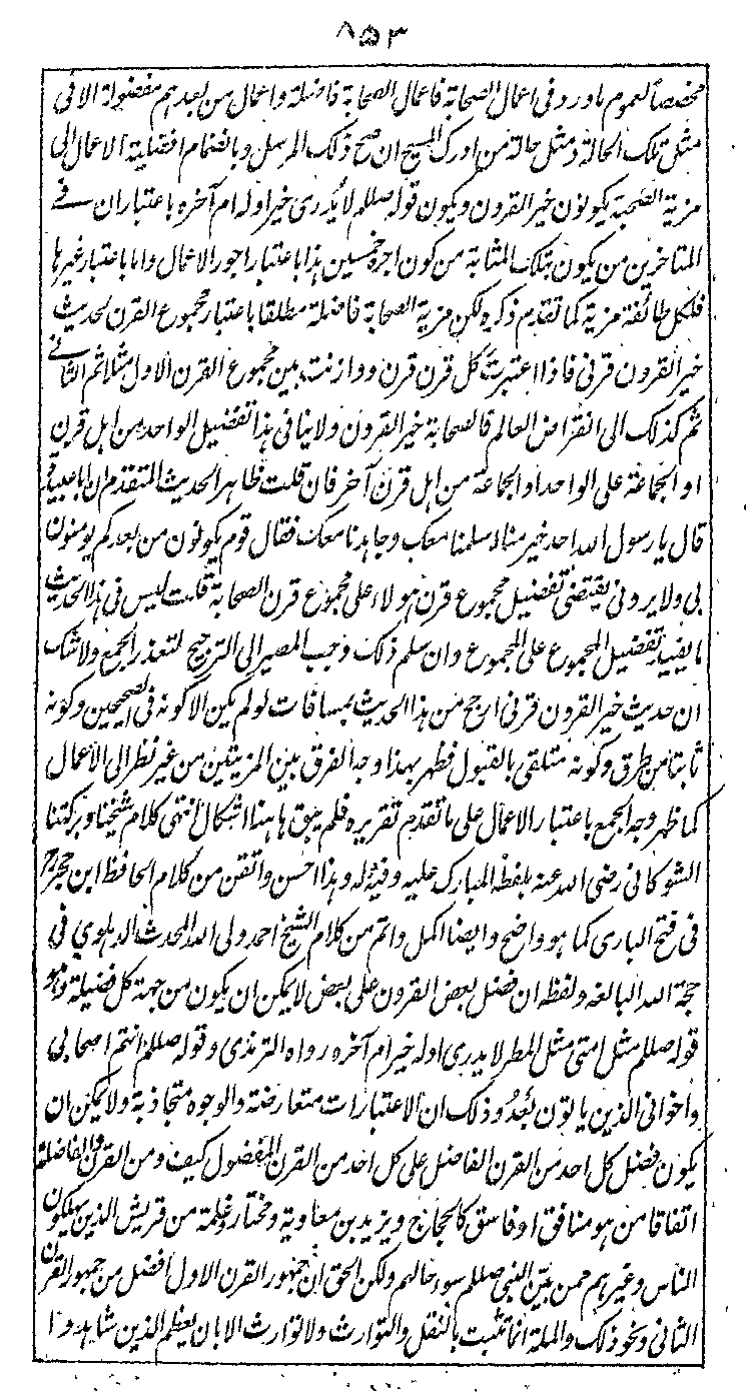 ٨٥٣
مخصصاً لعموم ما ورد فى اعمال الصحابة فاعمال الصحابة فاضلة واعمال من بعدهم مفضولة الا فى
مثل تلك الحالة ومثل حالة من ادرك المسيح ان صح ذلك المرسل وبانضمام افضلية الاعمال الى
مزية الصحبة يكونون خير القرون ويكون قوله صللم لا يدرى خير اوله ام آخره باعتبار ان فے
المتاخرين من يكون بتلك المثابة من كون اجره خمسين هذا باعتبار اجور الاعمال واما باعتبار غيرها
فلكل طائفة مزية كما تقدم ذكره لكن مزية الصحابة فاضلة مطلقا باعتبار مجموع القرن لحديث
خير القرون قرنى فاذا اعتبرت كل قرن قرن ووازنت بين مجموع القرن الاول مثلا ثم الثانے
ثم كذلك الى انقراض العالم فالصحابة خير القرون ولا ينافى هذا تفضيل الواحد من اهل قرن
او الجماعة على الواحد او الجماعة من اهل قرن آخر فان قلت ظاهر الحديث المتقدم ان ابا عبيدة
قال يا رسول الله احد خير منا اسلمنا معك وجاهدنا معك فقال قوم يكونون من بعدكم يومنون
بى ولا يرونى يقتضى تفضيل مجموع قرن هولاء على مجموع قرن الصحابة قلت ليس فى هذا الحديث
ما يفيد تفضيل المجموع على المجموع وان سلم ذلك وجب المصير الى الترجيح لتعذر الجمع ولا شك
ان حديث خير القرون قرنى ارجح من هذا الحديث بمسافات لو لم يكن الا كونه فى الصحيحين وكونه
ثابتا من طرق وكونه متلقى بالقبول فظهر بهذا وجه الفرق بين المزيتين من غير نظر الى الاعمال
كما ظهر وجه الجمع باعتبار الاعمال على ما تقدم تقريره فلم يبق هاهنا اشكال انتهى كلام شيخنا وبركتنا
الشوكانى رضى الله عنه بلفظه المبارك عليه وفيه وله وهذا احسن واتقن من كلام الحافظ ابن حجر رح
فى فتح البارى كما هو واضح وايضا اكمل واتم من كلام الشيخ احمد ولى الله المحدث الدهلوي فى
حجة الله البالغه ولفظه ان فضل بعض القرون على بعض لا يمكن ان يكون من جهة كل فضيلة وهو
قوله صللم مثل امتى مثل المطر لا يدرى اوله خير ام آخره رواه الترمذى وقوله صللم انتم اصحابى
واخوانى الذين ياتون بعد وذلك ان الاعتبارات متعارضة والوجوه متجاذبة ولا يمكن ان
يكون فضل كل احد من القرن الفاضل على كل احد من القرن المفضول كيف ومن القرون الفاضلة
اتفاقا من هو منافق او فاسق كالحجاج ويزيد بن معاوية ومختار وغلمة من قريش الذين يهلكون
الناس وغيرهم ممن بين النبى صللم سوء حالهم ولكن الحق ان جمهور القرن الاول افضل من جمهور القرن
الثانى ونحو ذلك والملة انما تثبت بالنقل والتوارث ولا توارث الا بان يعظم الذين شاهدوا